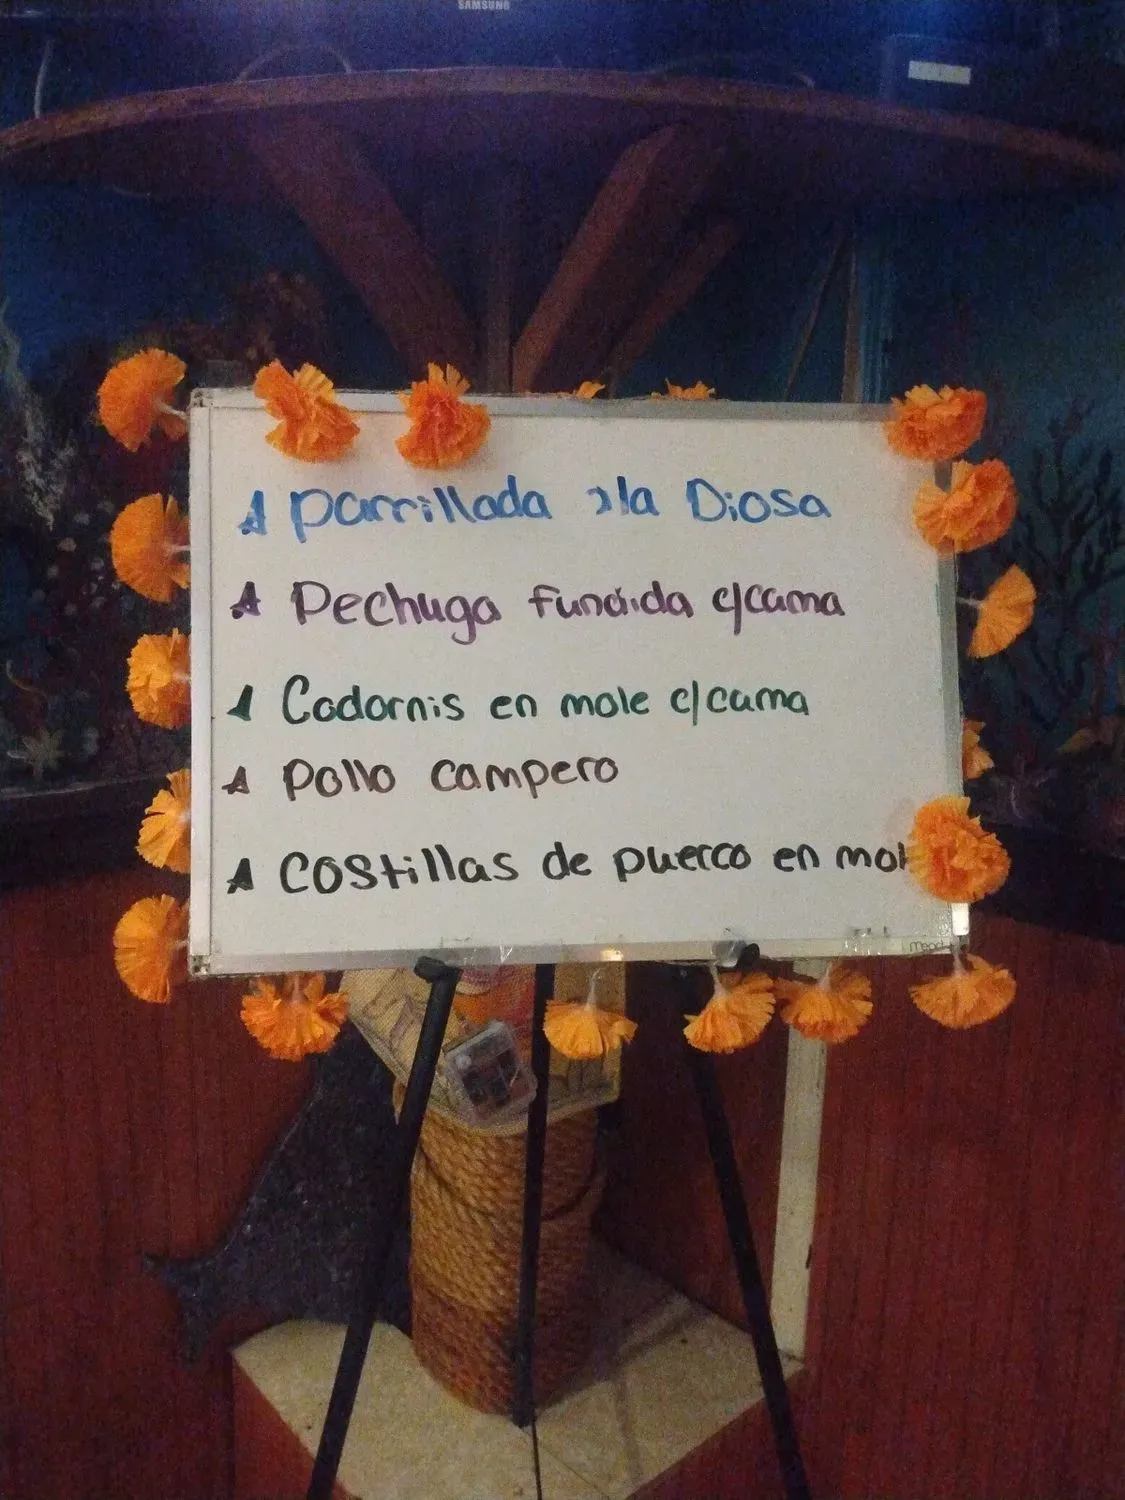 SAMSUNG
Parrillada a la Diosa
Pechuga fundida c/cama
Codornis en mole c/cama
Pollo campero
Costillas de puerco en mol
mead